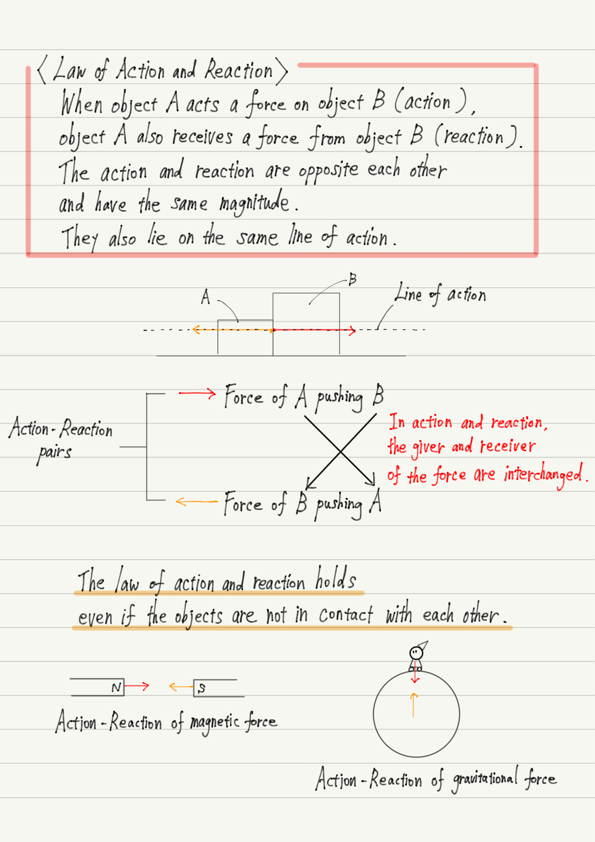 〈Law of Action and Reaction〉
When object A acts a force on object B (action),
object A also receives a force from object B (reaction).
The action and reaction are opposite each other
and have the same magnitude.
They also lie on the same line of action.
A
B
Line of action
Action-Reaction
pairs
Force of A pushing B
In action and reaction,
the giver and receiver
of the force are interchanged.
Force of B pushing A
The law of action and reaction holds
even if the objects are not in contact with each other.
N
S
Action-Reaction of magnetic force
Action-Reaction of gravitational force